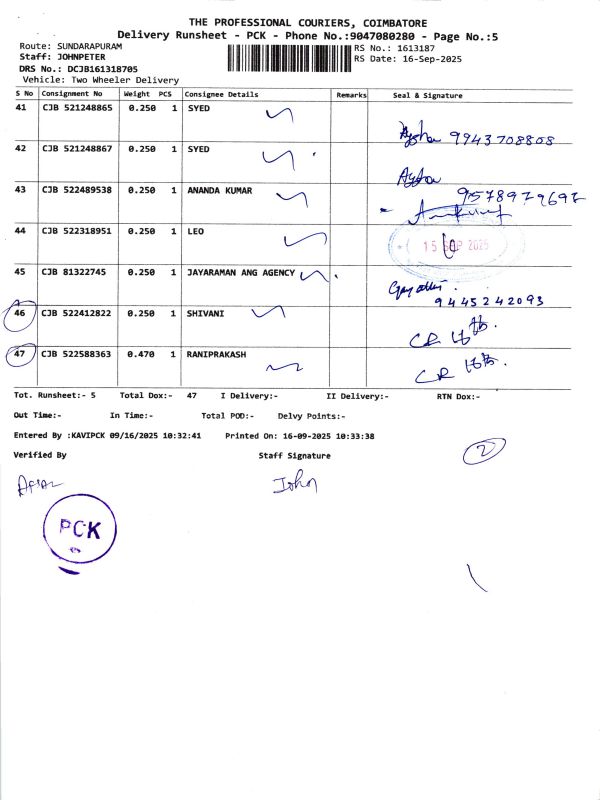 THE PROFESSIONAL COURIERS, COIMBATORE
Delivery Runsheet - PCK - Phone No.:9047080280 - Page No.:5
Route: SUNDARAPURAM
Staff: JOHNPETER
DRS No.: DCJB161318705
Vehicle: Two Wheeler Delivery
RS No.: 1613187
RS Date: 16-Sep-2025
S No Consignment No Weight PCS Consignee Details Remarks Seal & Signature
41 CJB 521248865 0.250 1 SYED
9943708808
42 CJB 521248867 0.250 1 SYED
43 CJB 522489538 0.250 1 ANANDA KUMAR
9578979697
44 CJB 522318951 0.250 1 LEO
15 SEP 2025
45 CJB 81322745 0.250 1 JAYARAMAN ANG AGENCY
9445242093
46 CJB 522412822 0.250 1 SHIVANI
CR
47 CJB 522588363 0.470 1 RANIPRAKASH
CR
Tot. Runsheet:- 5 Total Dox:- 47 I Delivery:- II Delivery:- RTN Dox:-
Out Time:- In Time:- Total POD:- Delvy Points:-
Entered By :KAVIPCK 09/16/2025 10:32:41 Printed On: 16-09-2025 10:33:38
2
Verified By Staff Signature
John
PCK